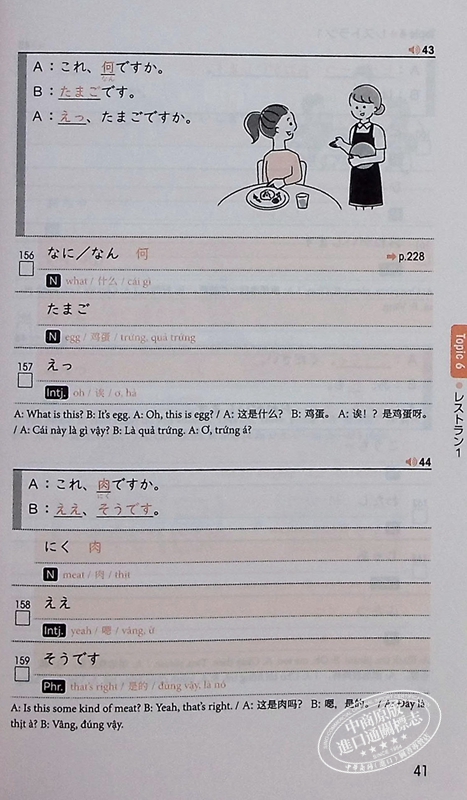 43
A：これ、何ですか。
なん
B：たまごです。
A：えっ、たまごですか。
156 なに／なん 何 ➡p.228
N what / 什么 / cái gì
たまご
N egg / 鸡蛋 / trứng, quả trứng
157 えっ
Intj. oh / 诶 / ơ, hả
A: What is this? B: It's egg. A: Oh, this is egg? / A: 这是什么? B: 鸡蛋。 A: 诶！？是鸡蛋呀。
/ A: Cái này là gì vậy? B: Là quả trứng. A: Ơ, trứng á?
Topic 6 ● レストラン1
44
A：これ、肉ですか。
にく
B：ええ、そうです。
にく 肉
N meat / 肉 / thịt
158 ええ
Intj. yeah / 嗯 / vâng, ừ
159 そうです
Phr. that's right / 是的 / đúng vậy, là nó
A: Is this some kind of meat? B: Yeah, that's right. / A: 这是肉吗? B: 嗯，是的。 / A: Đây là
thịt à? B: Vâng, đúng vậy.
中商原版
進口通關標志
41